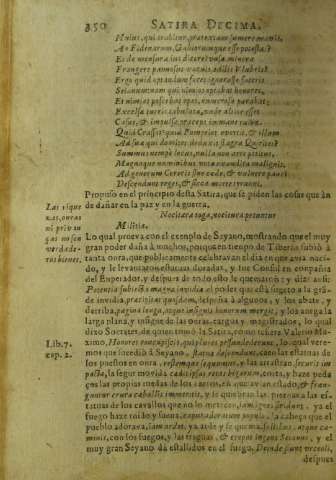 350 SATIRA DECIMA.
Huius, qui trahitur, prætextam sumere mauis,
An Fidenarum, Gabiorumque esse potestas?
Et de mensura ius dicere? vasa minora
Frangere pannosus vacuis ædilis Vlubris?
Ergo quid optandum foret ignorasse fateris
Seianum: nam qui nimios optabat honores,
Et nimias poscebat opes, numerosa parabat
Excelsæ turris tabulata, vnde altior esset
Casus, & impulsæ præceps immane ruinæ.
Quid Crassos? quid Pompeios euertit, & illum
Ad sua qui domitos deduxit flagra Quirites?
Summus nempe locus, nulla non arte petitus,
Magnaque numinibus vota exaudita malignis.
Ad generum Cereris sine cæde, & vulnere pauci
Descendunt reges, & sicca morte tyranni.
Propuso en el principio desta Satira, que se piden las cosas que an
de dañar en la paz y en la guerra,
Nocitura toga, nocitura petuntur
Militia.
Lo qual prueva con el exemplo de Seyano, mostrando que el muy
gran poder daña à muchos, porque en tiempo de Tiberio subiò à
tanta que publicamente celebravan el dia en que avia naci-
do, y le levantaron estatuas doradas, y fue Consul en compañia
del Emperador, y despues de todo esto le
Potentia subiecta magna invidia el poder que està sugeto a la grã-
de invidia, præcipitat quosdam, despeña à algunos, y los abate, y
derriba, pagina longa, atque insignis honorum mergit, y los anega la
larga plana, y insigne de las cargas, y magistrados, lo qual
dixo Socrates, de quien tomò la Satira, como refiere Valerio Ma-
ximo, Honores concupiscis, qui plures pessundedere, lo qual vere-
mos que sucediò à Seyano, statuæ descendunt, con las estatuas de
los puestos en otra, restemque sequuntur, y las arrastran securis im-
pacta, la segur movida
ços las propias ruedas de los carros, en que avian estado, & fran-
guntur crura caballis immeritis, y le quiebran las piernas a las es-
tatuas de los cavallos que no lo merecen, iam stridunt ignes, ya el
fuego haze ruido y suena, caput adoratum populo, la cabeça que el
pueblo adorava, iam ardet, ya arde y se quema, follibus, atque ca-
minis, con los fuegos, y las fraguas, & crepat ingens Seianus, y el
muy gran Seyano da estallidos en el fuego. Deinde sunt vrceoli,
despues
Lib. 7.
cap. 2.